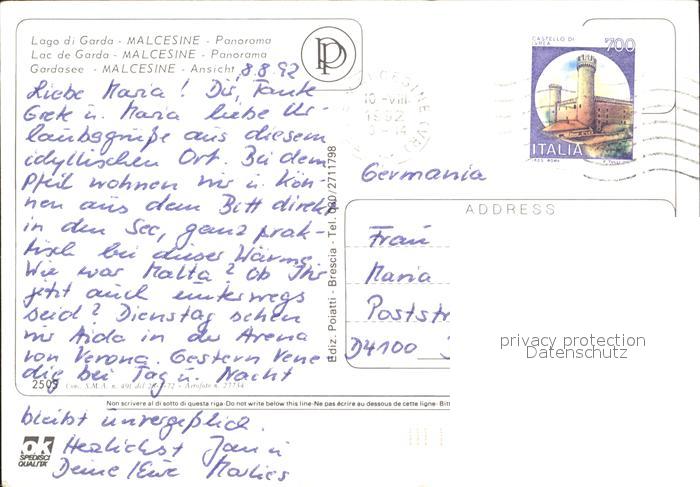 Lago di Garda - MALCESINE - Panorama
Lac de Garda - MALCESINE - Panorama
Gardasee - MALCESINE - Ansicht
8.8.92
Liebe Maria! Dir, Tante
Grete u. Maria liebe Ur-
laubsgrüße aus diesem
idyllischen Ort. Bei dem
Pfeil wohnen wir u. kön-
nen aus dem Bett direkt
in den See, ganz prak-
tisch bei dieser Wärme.
Wie war Malta? Ob Ihr
jetzt auch unterwegs
seid? Dienstag sehen
wir Aida in der Arena
von Verona. Gestern Vene
dig bei Tag u. Nacht
bleibt unvergeßlich.
Herzlichst Jan u
Deine/Eure Marlies
2509
Ediz. Poiatti - Brescia - Tel. 030/2711798
Non scrivere al di sotto di questa riga-Do not write below this line-Ne pas écrire au dessous de cette ligne-Bitt
ok
SPEDISCI
QUALITA'
P
CASTELLO DI
IVREA
700
ITALIA
MALCESINE (VR)
10 -VIII
1992
Germania
ADDRESS
Frau
Maria
Poststr
D4100
privacy protection
Datenschutz